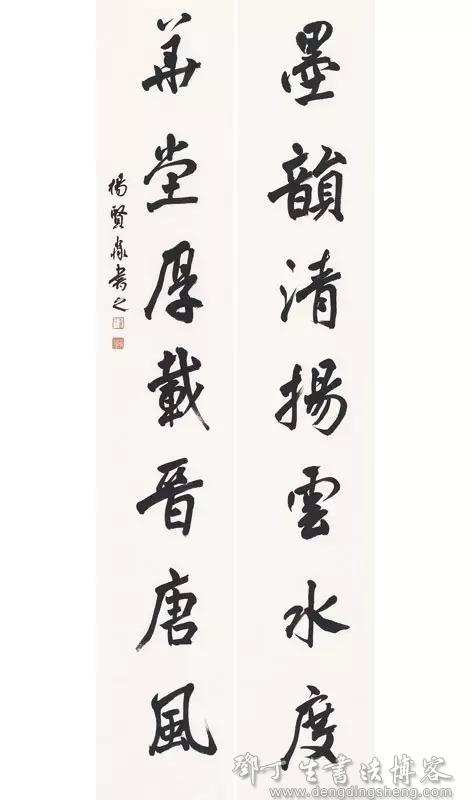 墨韻清揚雲水度
華堂厚載晉唐風
楊賢淼書之
鄧丁生書法博客
www.dengdingsheng.com